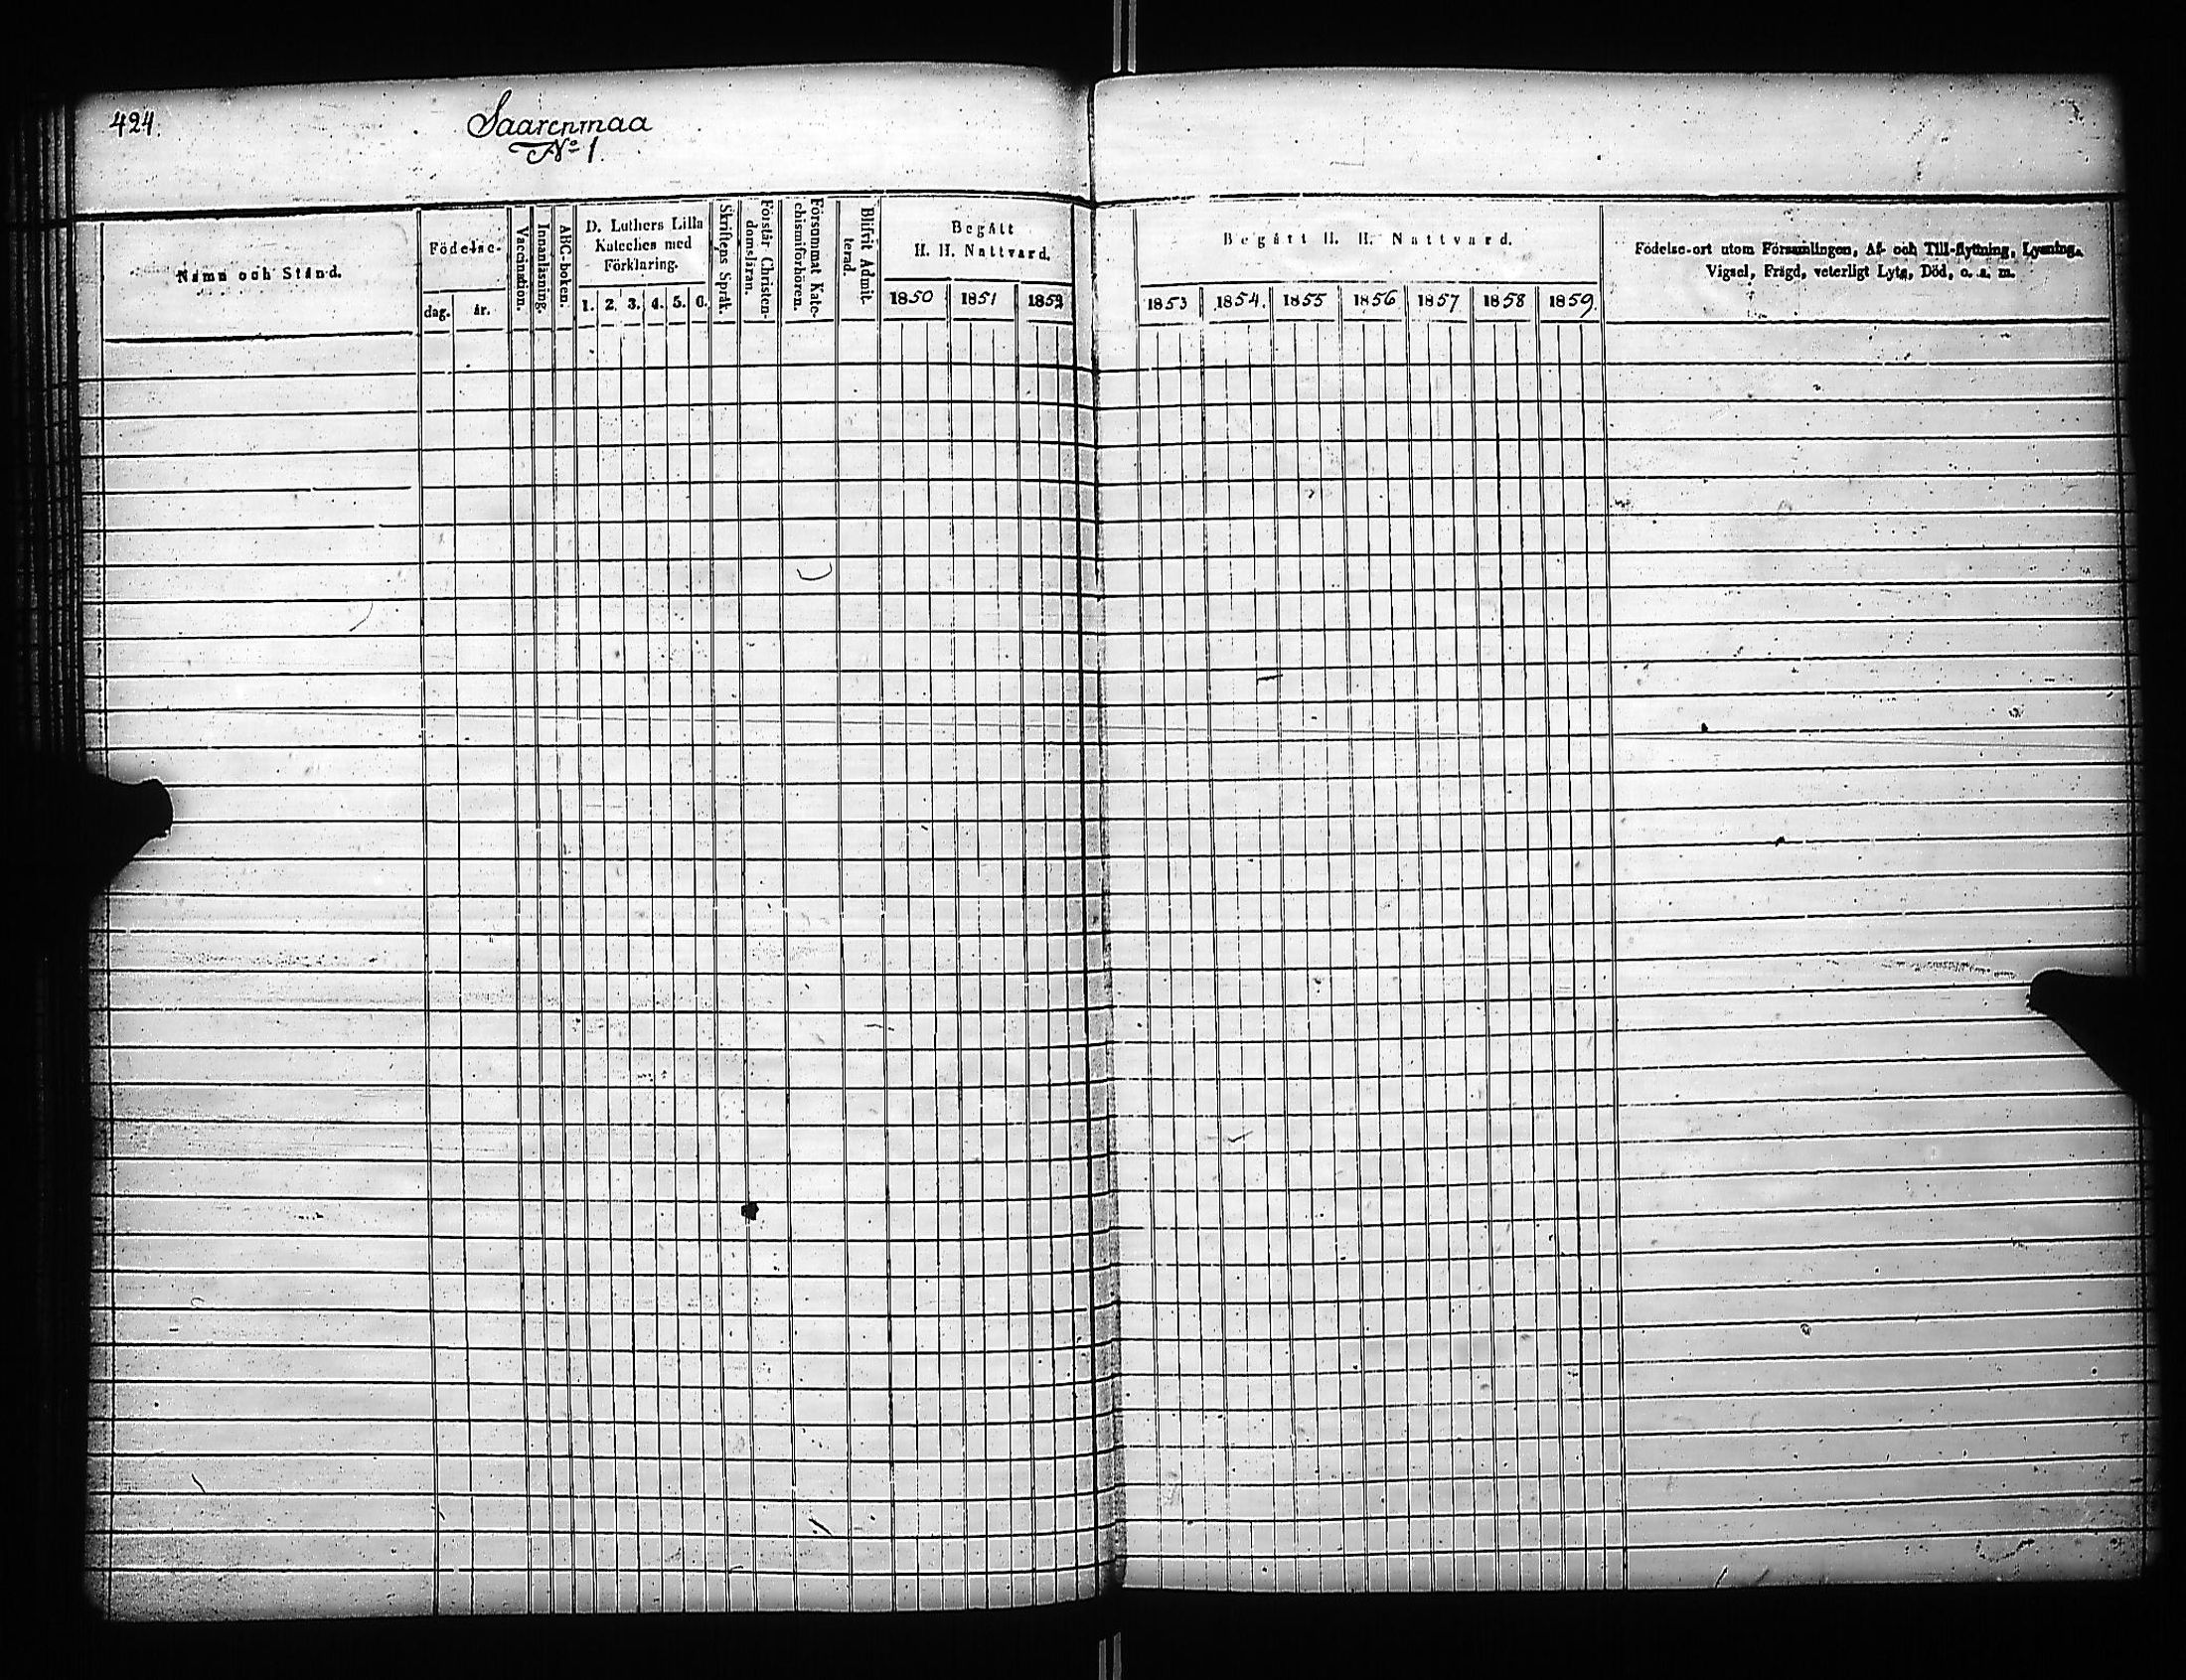 424.
Saarenmaa
No 1.
Namn och Stånd.
Födelse-
dag.
år.
Vaccination.
Innanläsning.
ABC-boken.
D. Luthers Lilla
Kateches med
Förklaring.
1. 2. 3. 4. 5. 6.
Skriftens Språk.
Förstår Christen-
domsläran.
Försummat Kate-
chismiförhören.
Blifvit Admit-
terad.
Begått
H. H. Nattvard.
1850 1851 1852
Begått H. H. Nattvard.
1853 1854. 1855 1856 1857 1858 1859.
Födelse-ort utom Församlingen, Af- och Till-flyttning, Lysning,
Vigsel, Frägd, veterligt Lyte, Död, o. s. m.